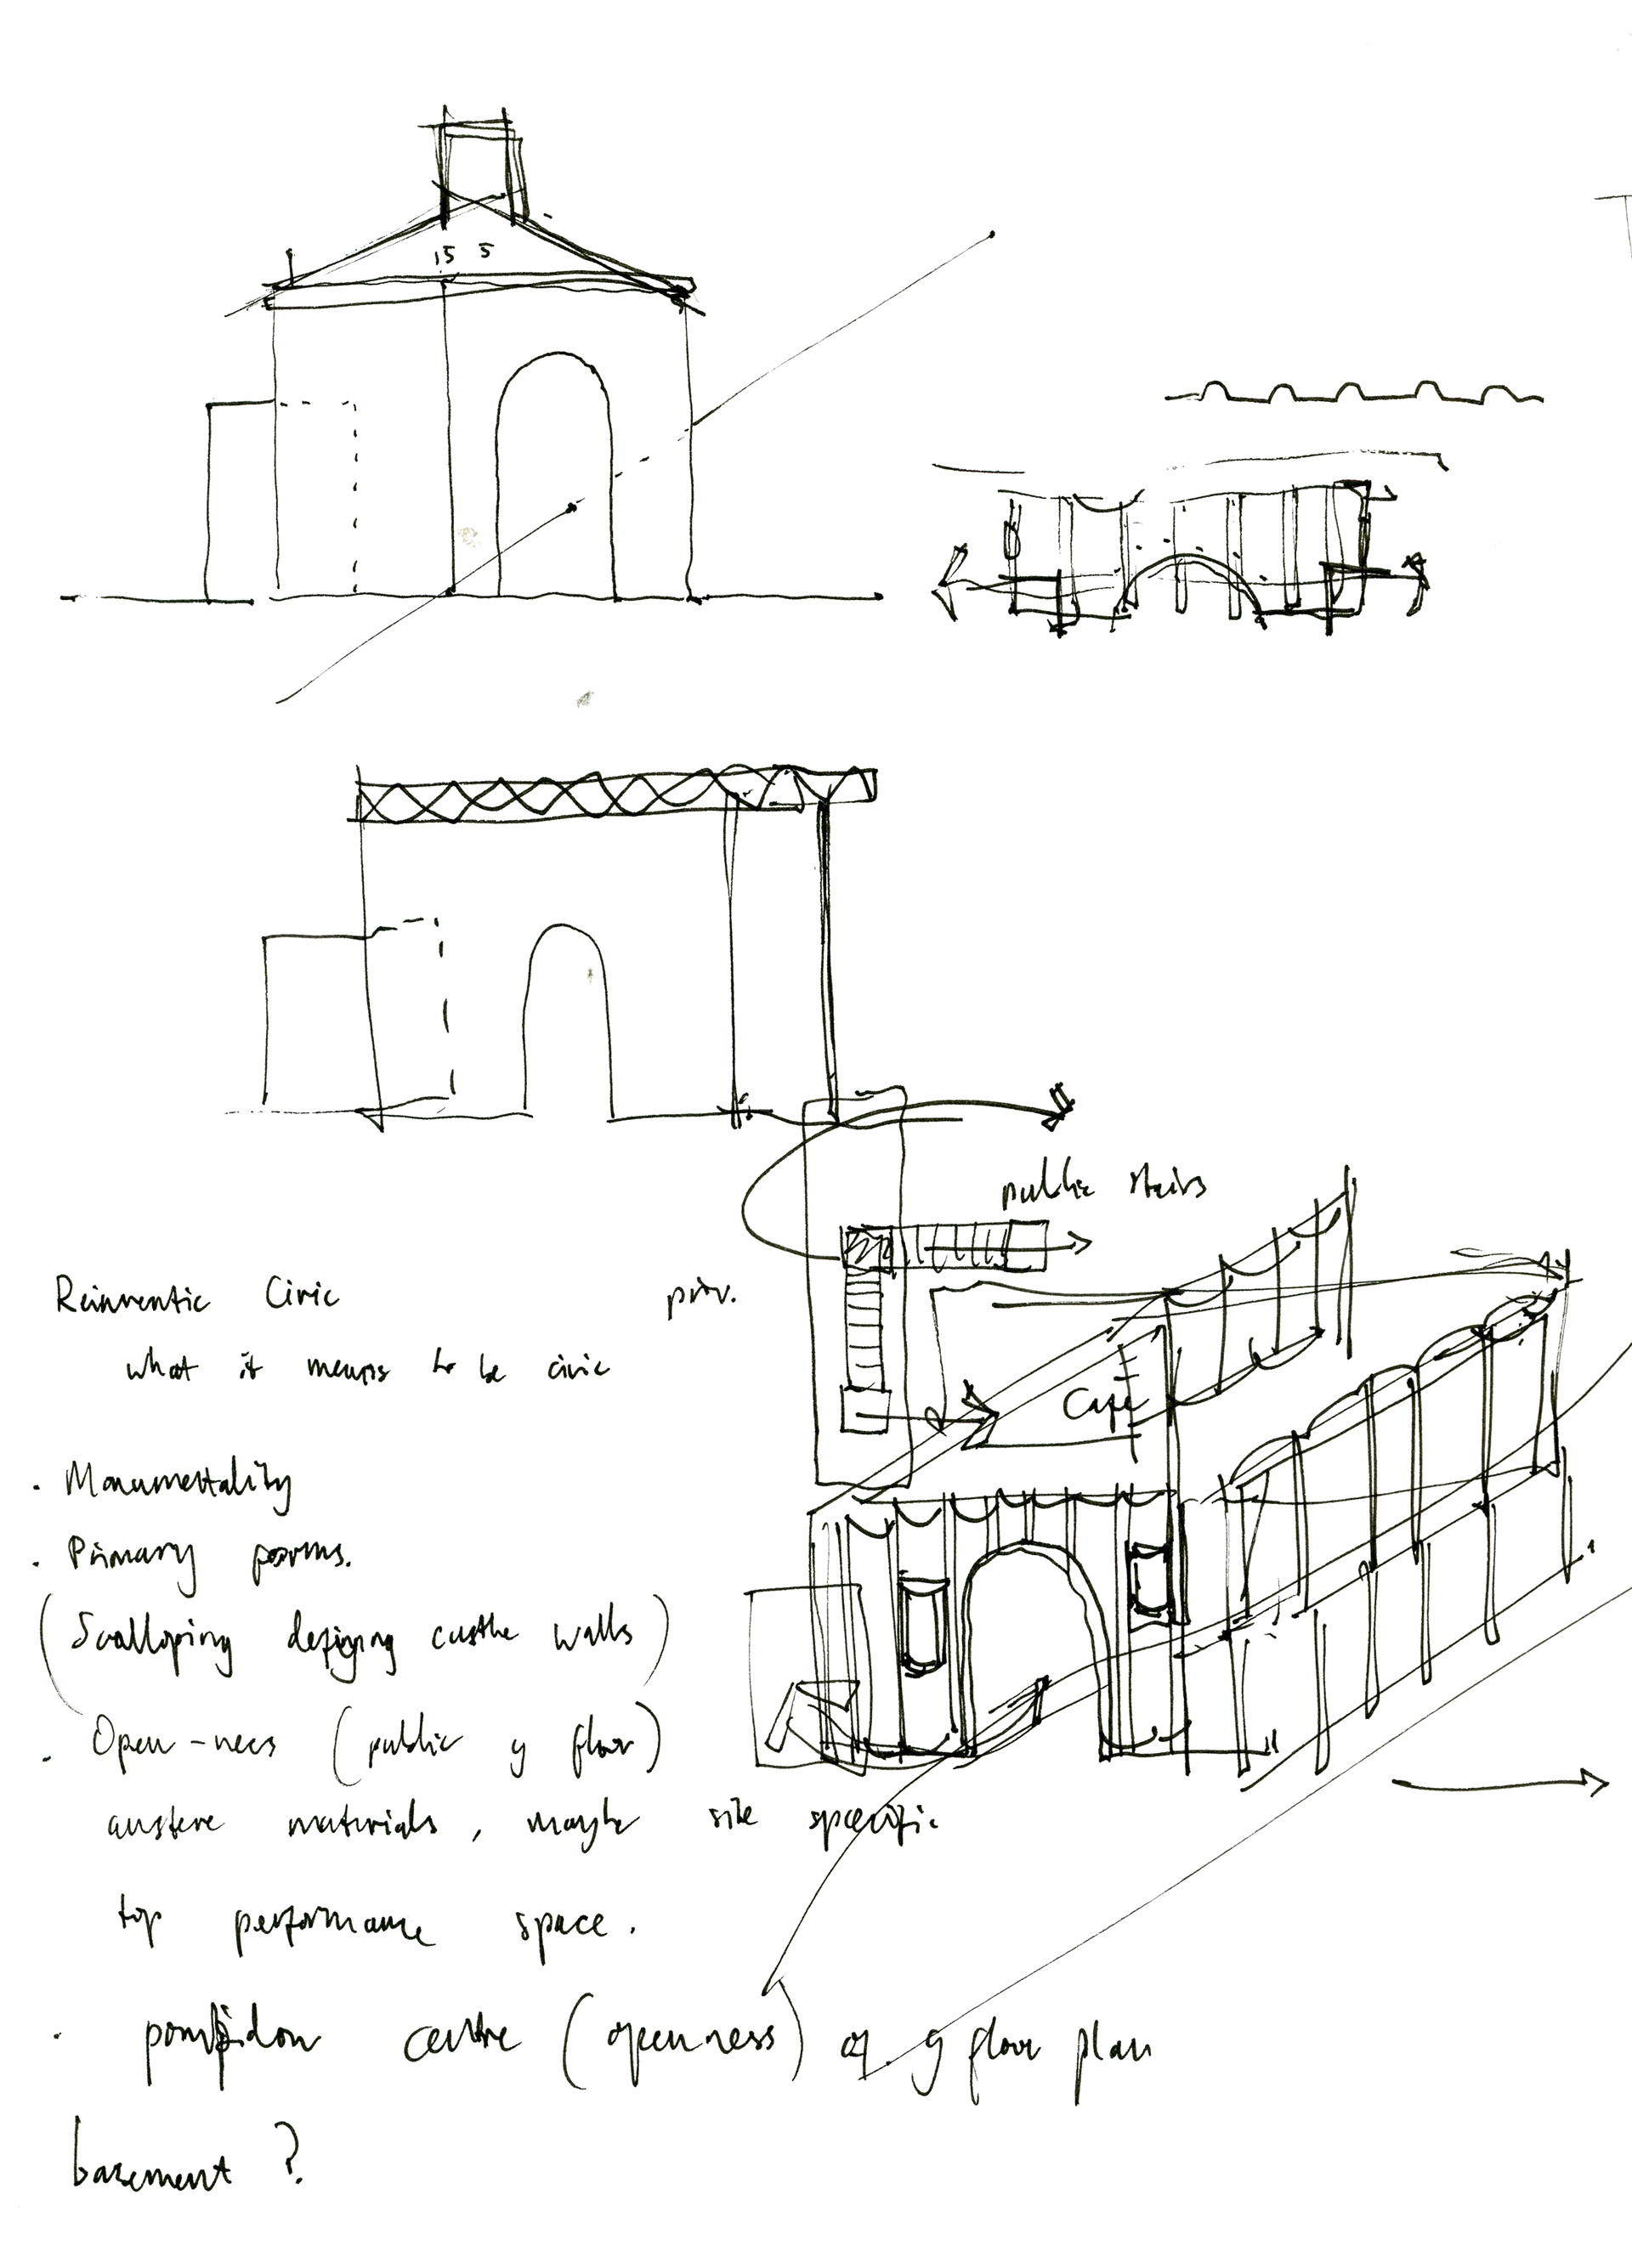 15 5
public stairs
Reinventic Civic
priv.
what it means to be civic
Cafe
· Monumentality
· Primary forms.
(Scalloping defining castle walls)
· Open-ness (public g floor)
austere materials, maybe site specific
top performance space.
· pompidou centre (openness) of g floor plan
basement ?